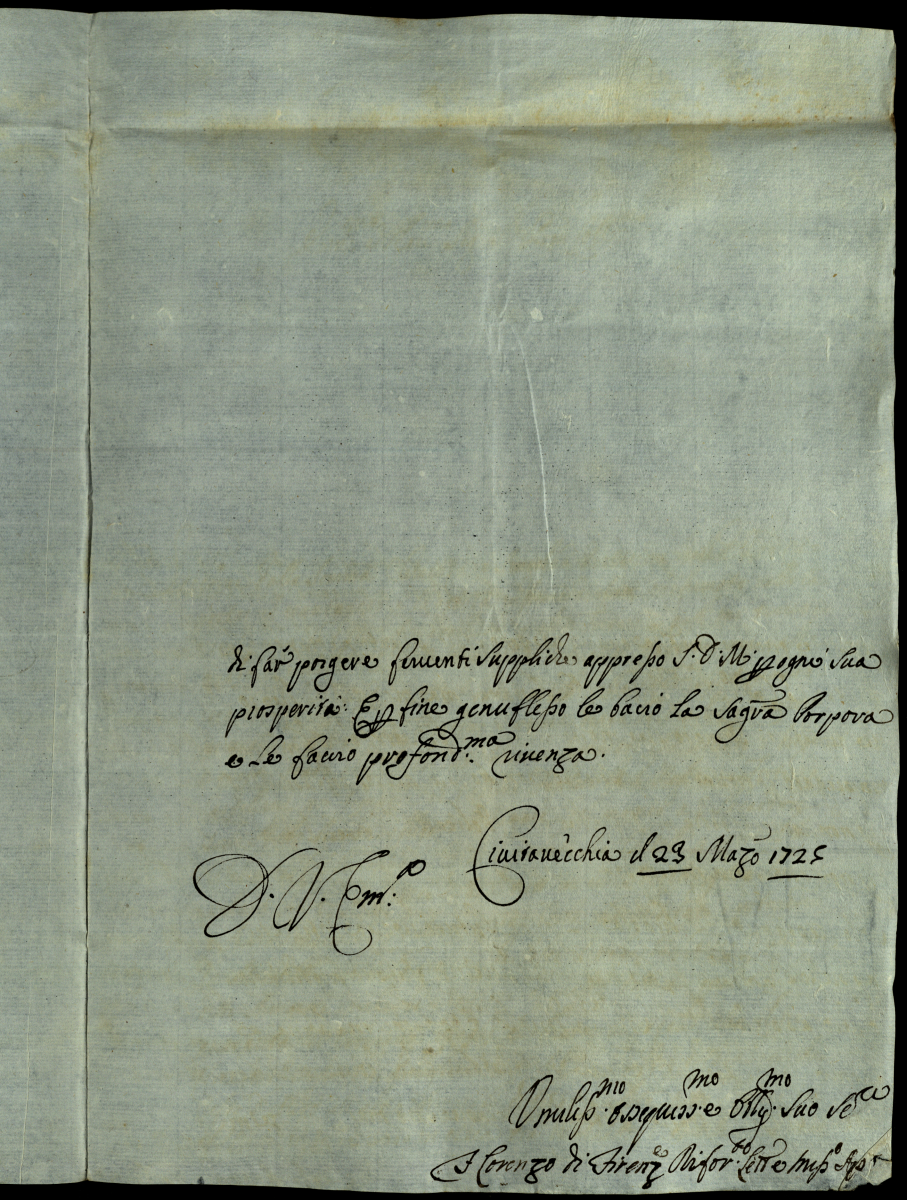 di far porgere feruenti suppliche appresso S. D. M. p ogni sua
prosperità: E p fine genuflesso le bacio la sagra Porpora
e le faccio profond.ma riuenza.
Ciuitauecchia il 23 Mazo 1725
D. V. Em.
Vmiliss.mo ossequiss.mo e Obllig.mo suo
F Lorenzo di Firenze Rifor.to